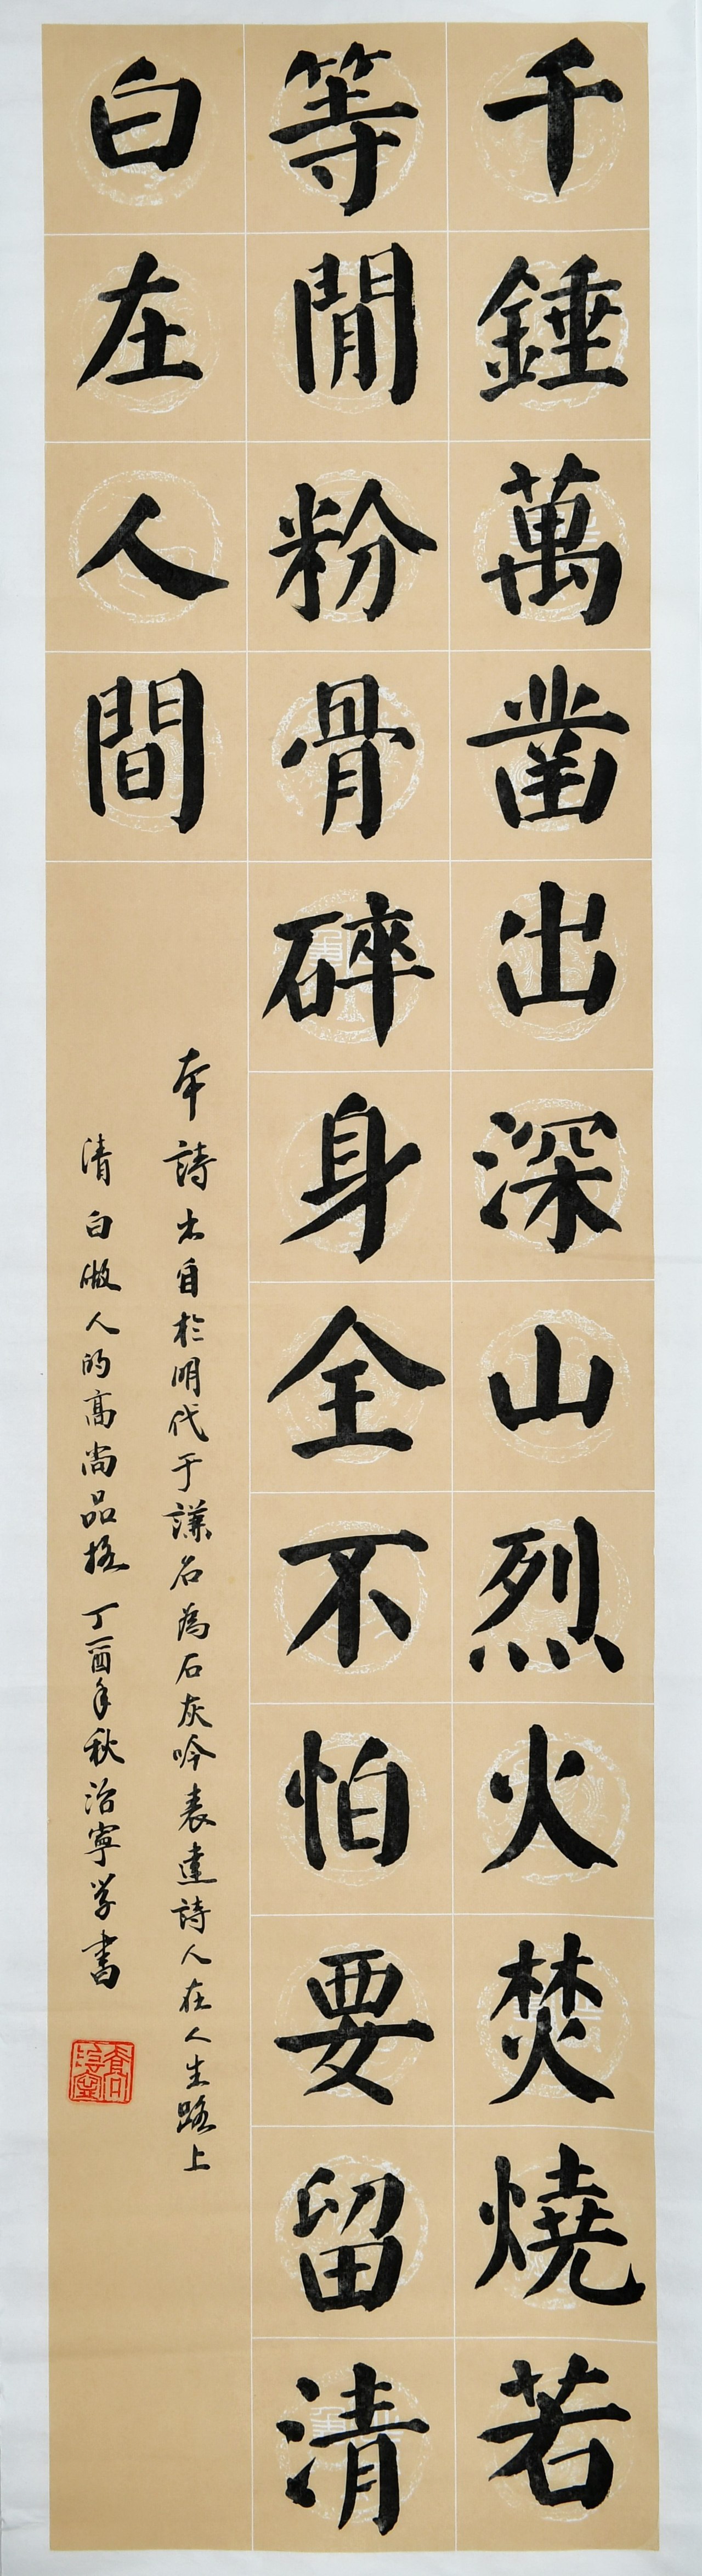 千錘萬凿出深山烈火焚燒若
等閒粉骨碎身全不怕要留清
白在人間
本詩出自於明代于謙名為石灰吟表達詩人在人生路上
清白做人的高尚品格丁酉年秋治寧學書